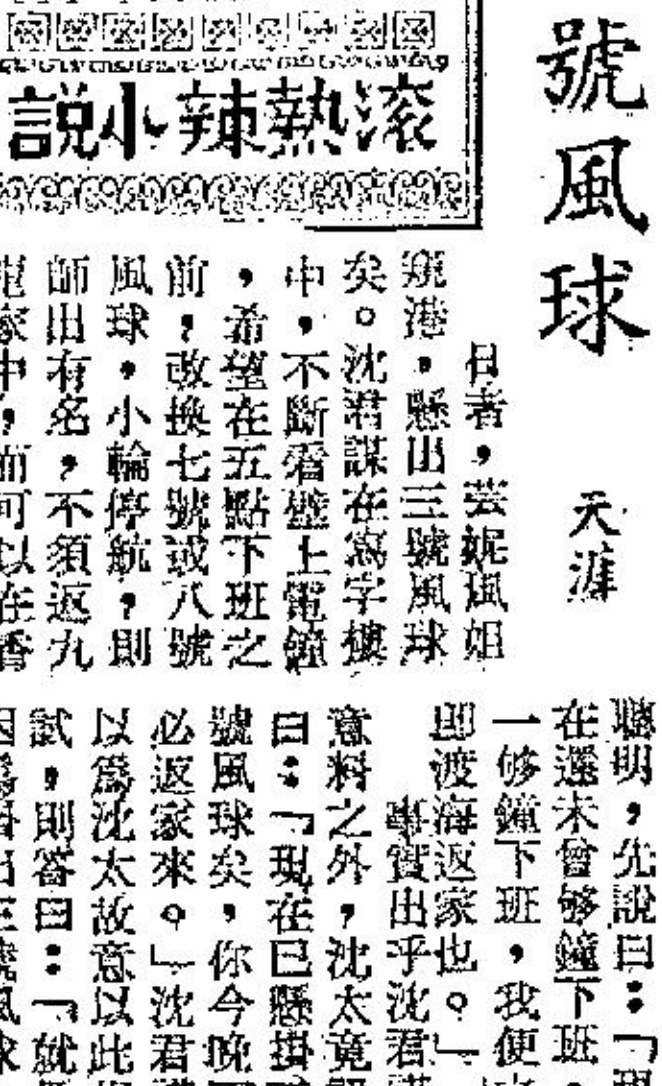 號風球
天涯
滾熱辣小說
日者,芸妮姐
窺港,懸出三號風球
矣。沈君謀在寫字樓
中,不斷看壁上電鐘
,希望在五點下班之
前,改換七號或八號
風球,小輪停航,則
師出有名,不須返九
龍家中,而可以在香
聰明,先說曰:「
在還未曾够鐘下班
一够鐘下班,我便
即渡海返家也。」
事實出乎沈君
意料之外,沈太竟
曰:「現在已懸掛
號風球矣,你今晚
必返家來。」沈君
以爲沈太故意以此
試,則答曰:「就
因爲掛出三號風球